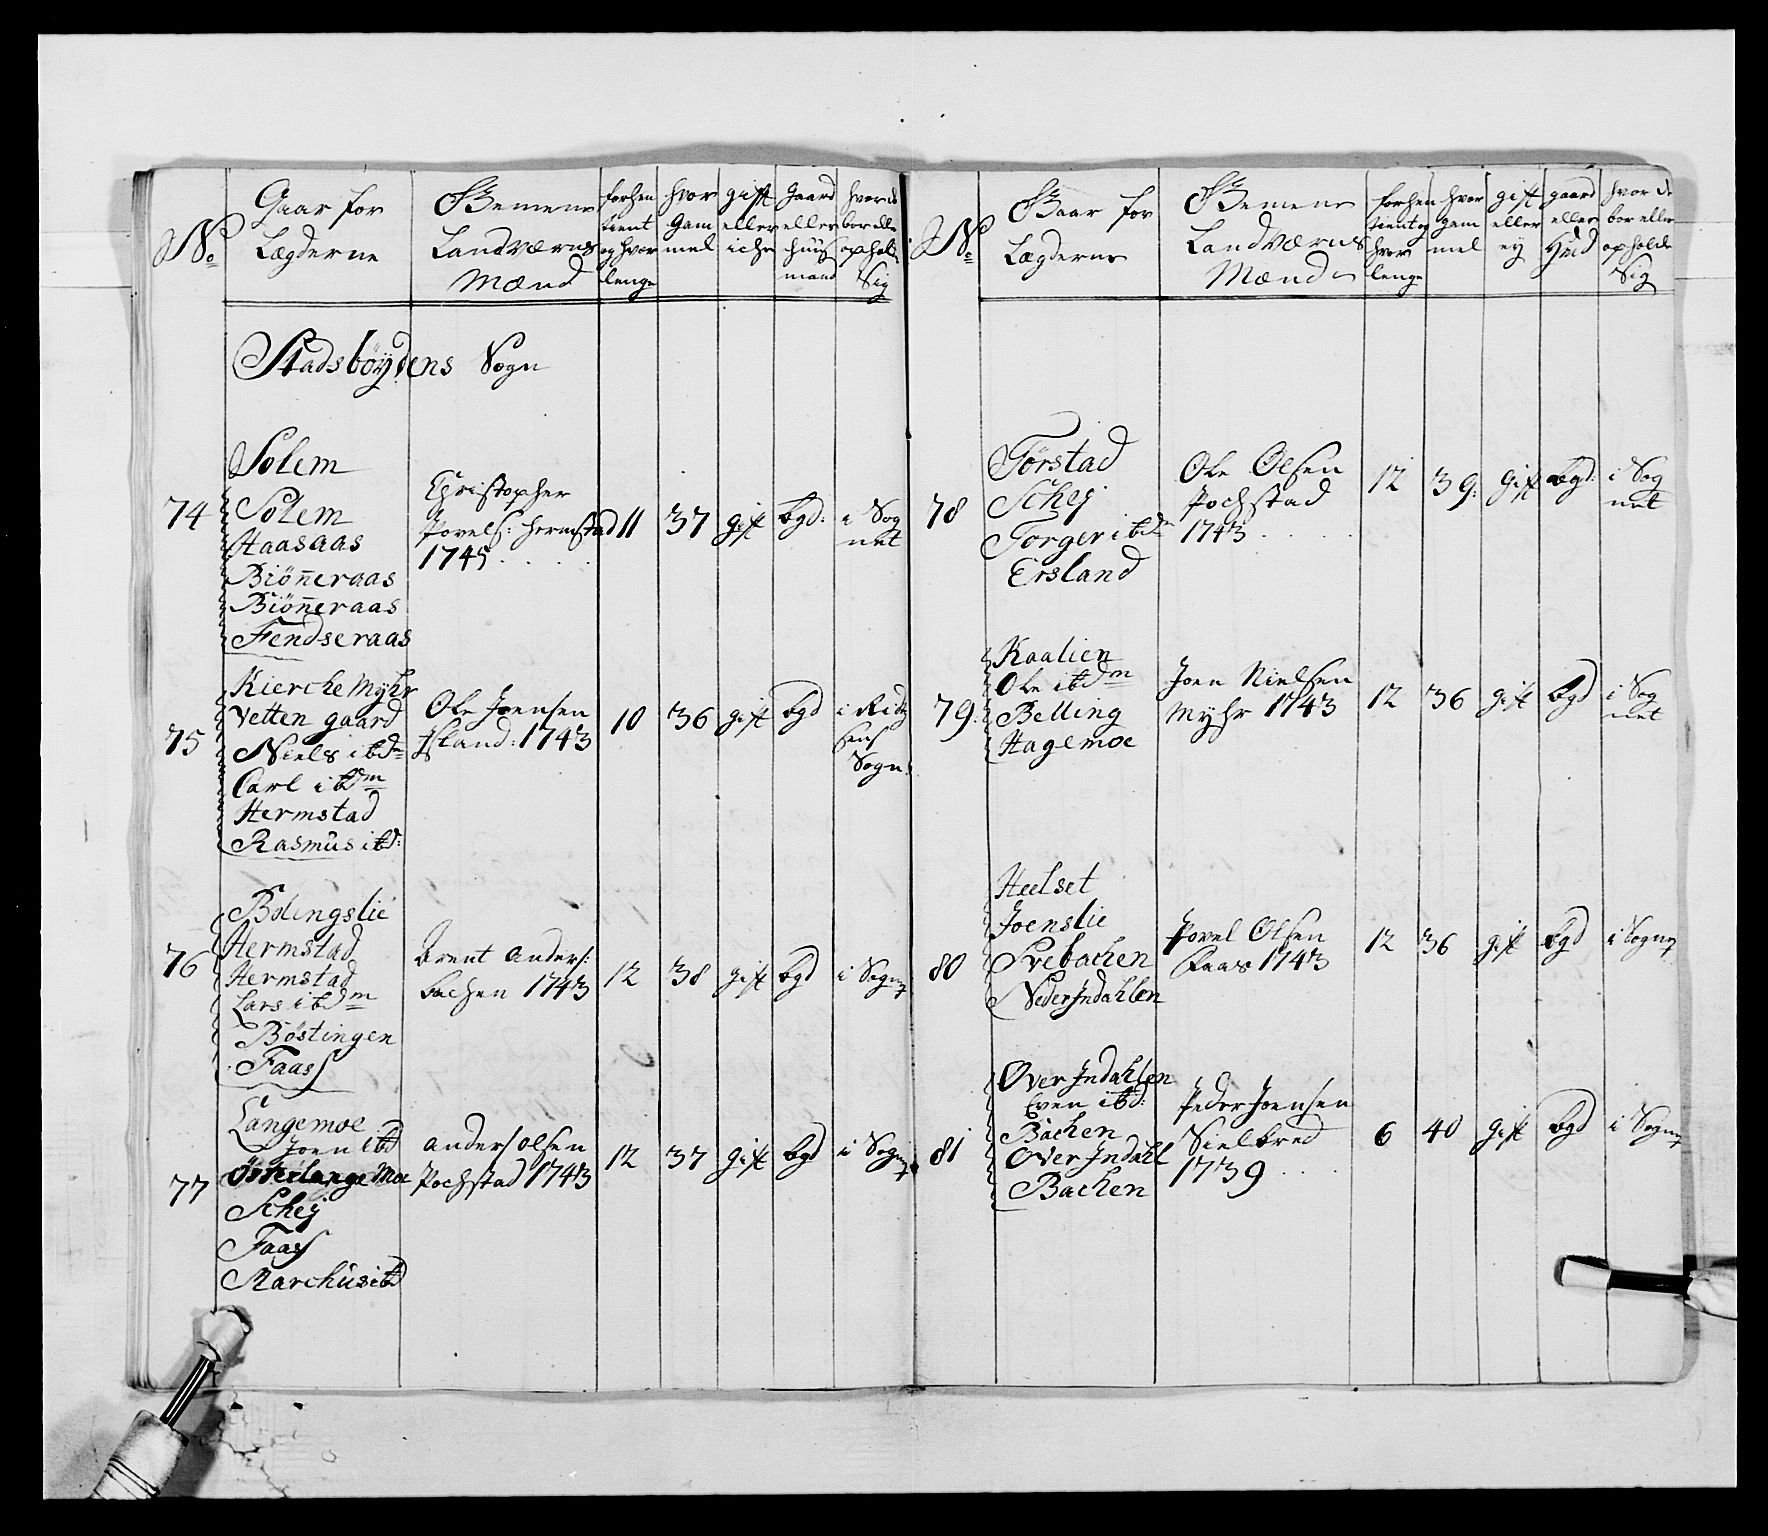 No
Gaar for
Lægderne
Gemene
Landværns
Mænd
forhen
tient
og hvor
lenge
hvor
Gam
mel
gift
eller
iche
Gaard
eller
huus
mand
hvor de
bor eller
ophold
Sig
Stadsbøÿdens Sogn
74
Solem
Solem
Haasaas
Biöneraas
Biöneraas
Fendseraas
Christopher
Povels: Hermstad
1745
11
37
gift
bgd:
i Sog
net
75
Kierche Myhr
Vetten gaard
Niels ibdm
Carl ibdm
Hermstad
Rasmus ibd:
Ole Joensen
Island: 1743
10
36
gift
bgd
i
Sogn
76
Bolingslie
Hermstad
Hermstad
Lars ibdm
Böstingen
Faass
Arent Anders:
Bachen 1743
12
38
gift
bgd
i Sogn
77
Langemoe
Joen ibd
Österlange Moe
Schej
Faass
Marchus ibd
Anders Olsen
Pochstad 1743
12
37
gift
bgd
i Sogn
No
Gaar for
Lægderne
Gemene
Landværns
Mænd
forhen
tient og
hvor
lenge
hvor
gam
mel
gift
eller
ey
gaard
eller
Hmd
hvor de
bor eller
opholde
Sig
78
Törstad
Schej
Torger ibdm
Ersland
Ole Olsen
Pochstad
1743
12
39:
gift
bgd:
i Sog
net
79:
Kaalien
Ole ibdm
Belling
Hagemoe
Joen Nielsen
Myhr 1743
12
36
gift
bgd
i Sog
net
80
Heelset
Joenslie
Svebachen
Neder Indahlen
Povel Olsen
Faas 1743
12
36
gift
bgd
i Sogn
81
Over Indahlen
Even ibd:
Bachen
Over Indahl
Bachen
Peder Joensen
1739
6
40
gift
bgd
i Sogn